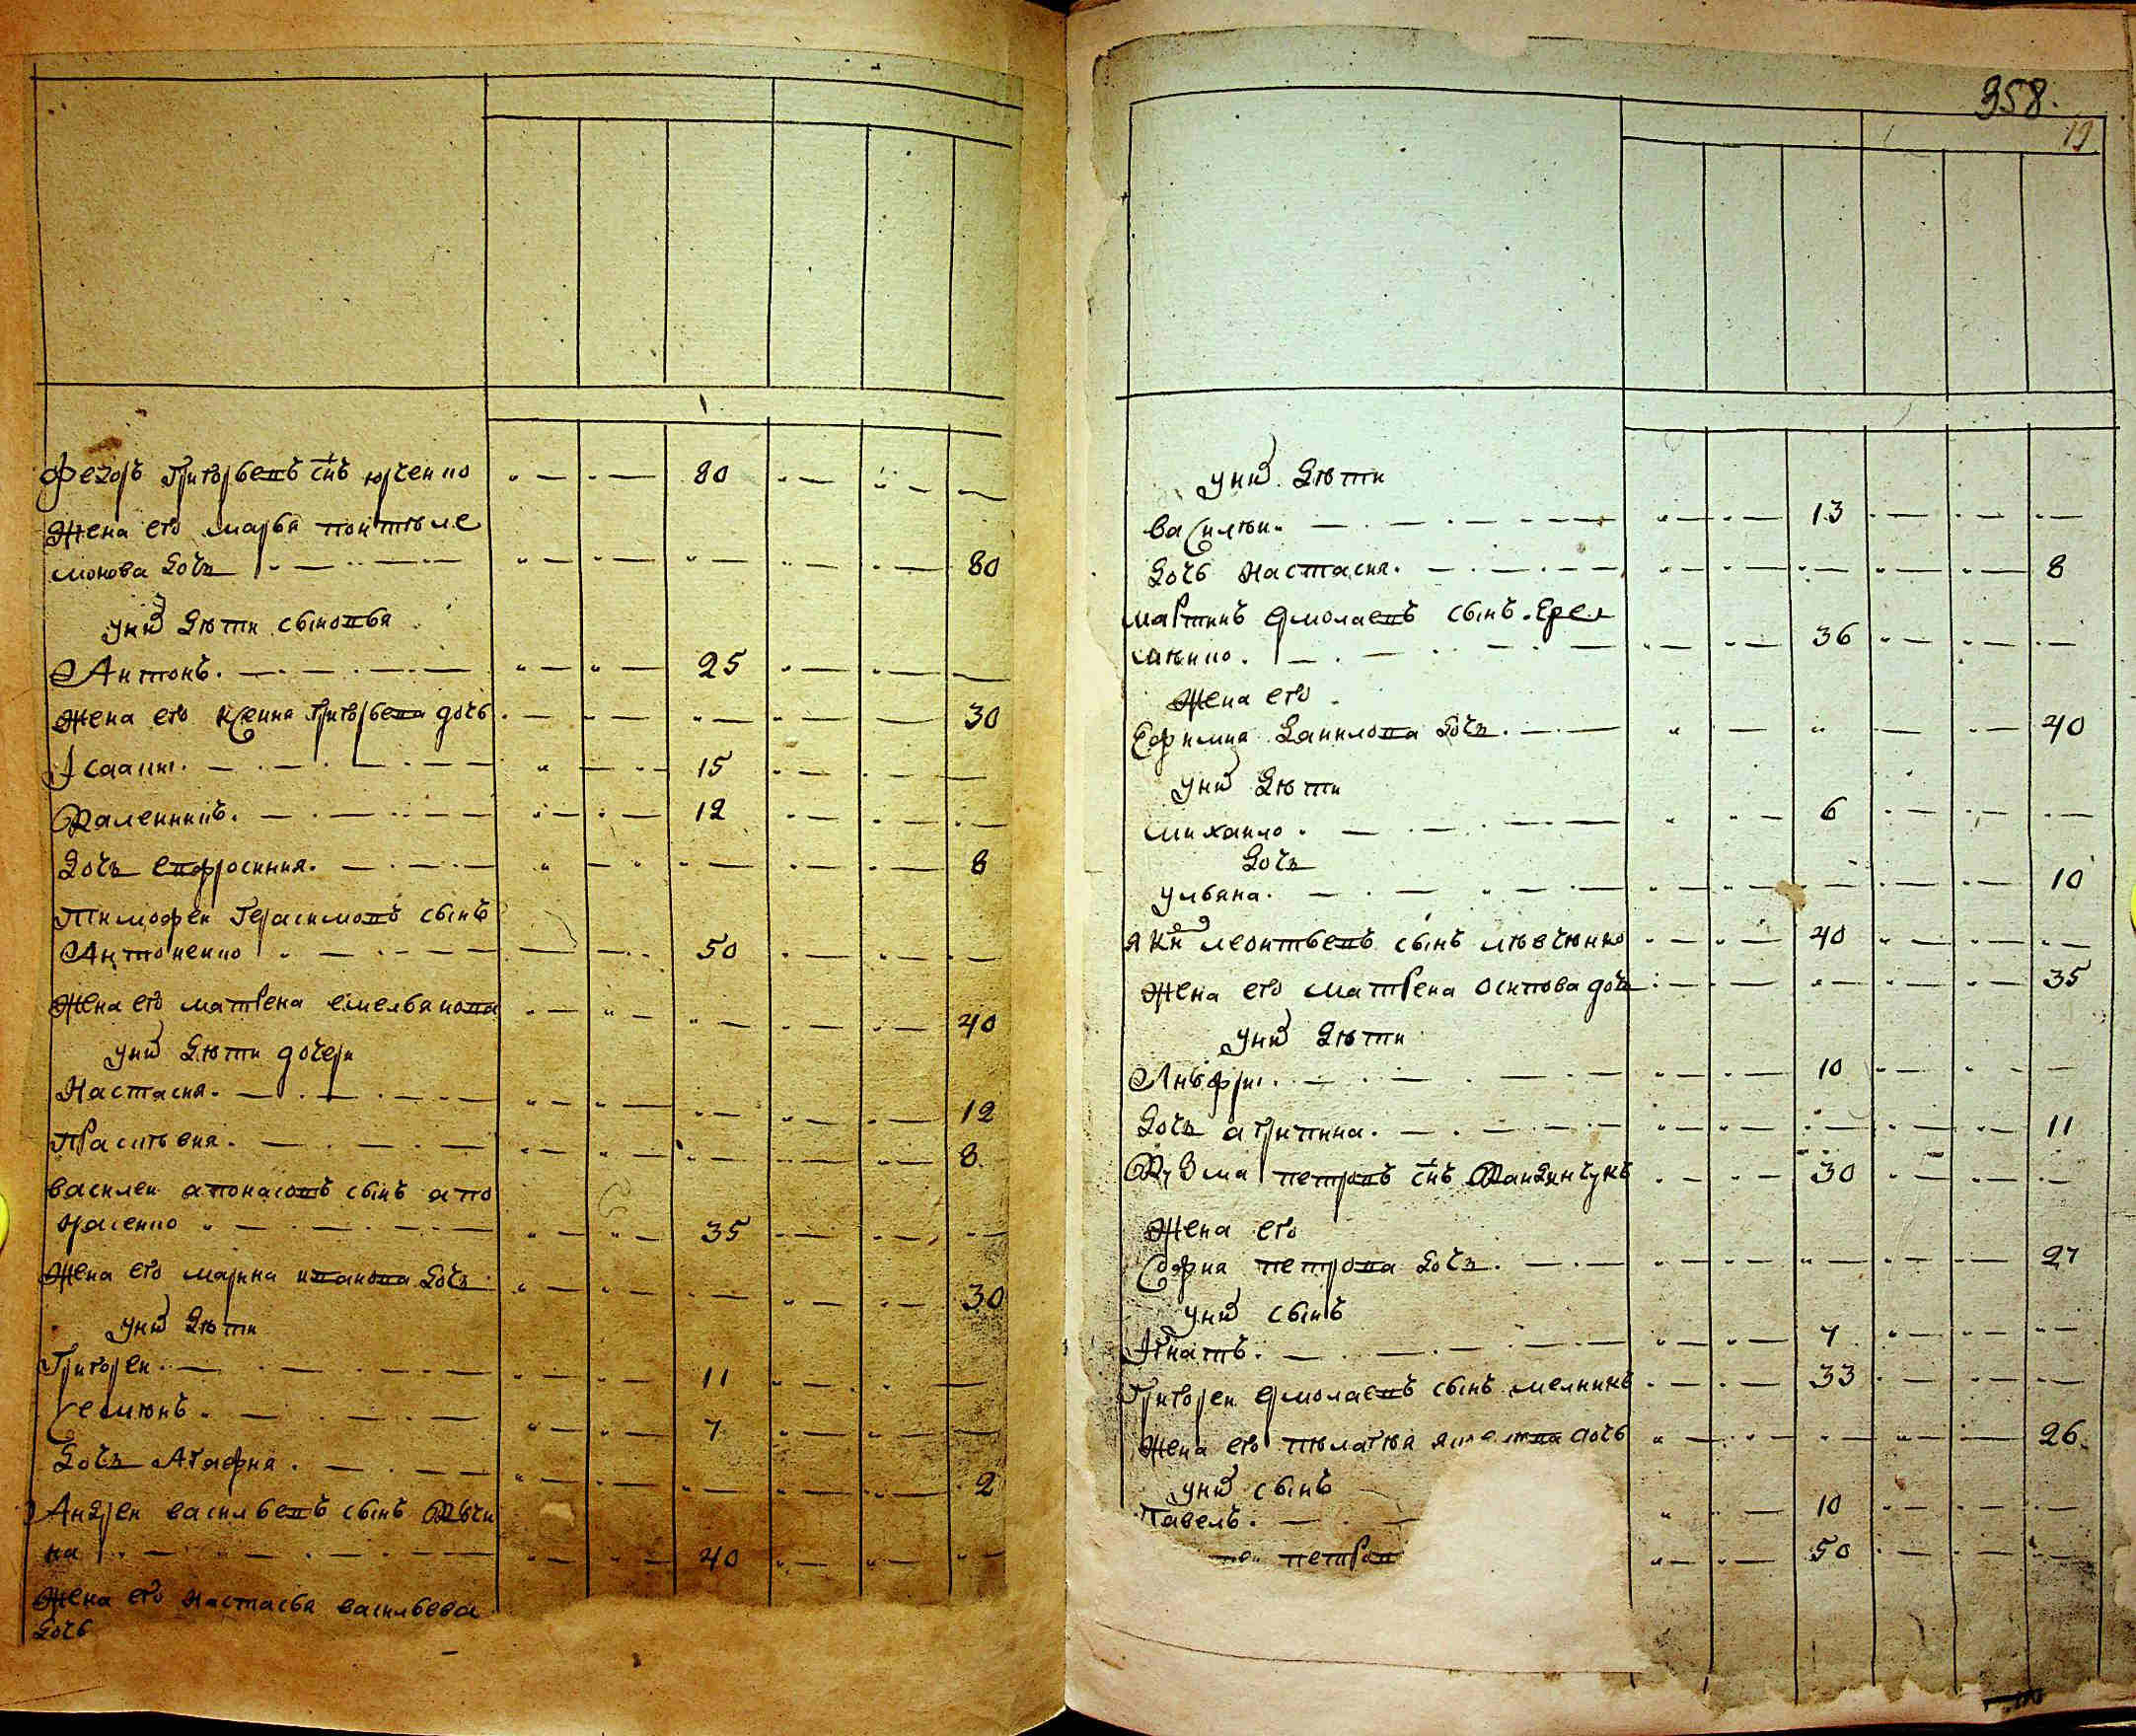 Федоръ Григорьевъ снъ юрченко 80
Жена его марья понтеле
монова дочь 80
у них дѣти сыновья
Антонъ. 25
Жена его ксения Григорьева дочь 30
Ісаакии. 15
Каленникъ. 12
Дочь евфросиния. 8
Тимофеи Герасимовъ сынъ
Антоненко 50
Жена его матрена емельянова 40
у них дѣти дочери
Настасия. 12
Прасковия. 8
василеи апонасовъ сынъ апо
насенко 35
Жена его марина иванова дочь 30
у них дѣти
Григореи. 11
Семионъ. 7
Дочь Агафия. 2
Андреи васильевъ сынъ
на 40
Жена его настасья васильева
дочь
358.
19
у них дѣти
василѣи. 13
дочь настасия. 8
мартинъ ермолаевъ сынъ. Ере
мѣнко. 36
Жена его
Ефимия Данилова дочь. 40
у них дѣти
михаило. 6
Дочь
ульяна. 10
якимъ леонтьевъ сынъ левченко 40
Жена его матрена осипова дочь 35
у них дѣти
10
Дочь агрипина. 11
Кузма петровъ снъ 30
Жена его
София петрова дочь. 27
у них сынъ
Ігнатъ. 7
Григореи ермолаевъ сынъ мелникъ 33
Жена его пелагея дочь 26.
у них сынъ
Павелъ. 10
петров 50